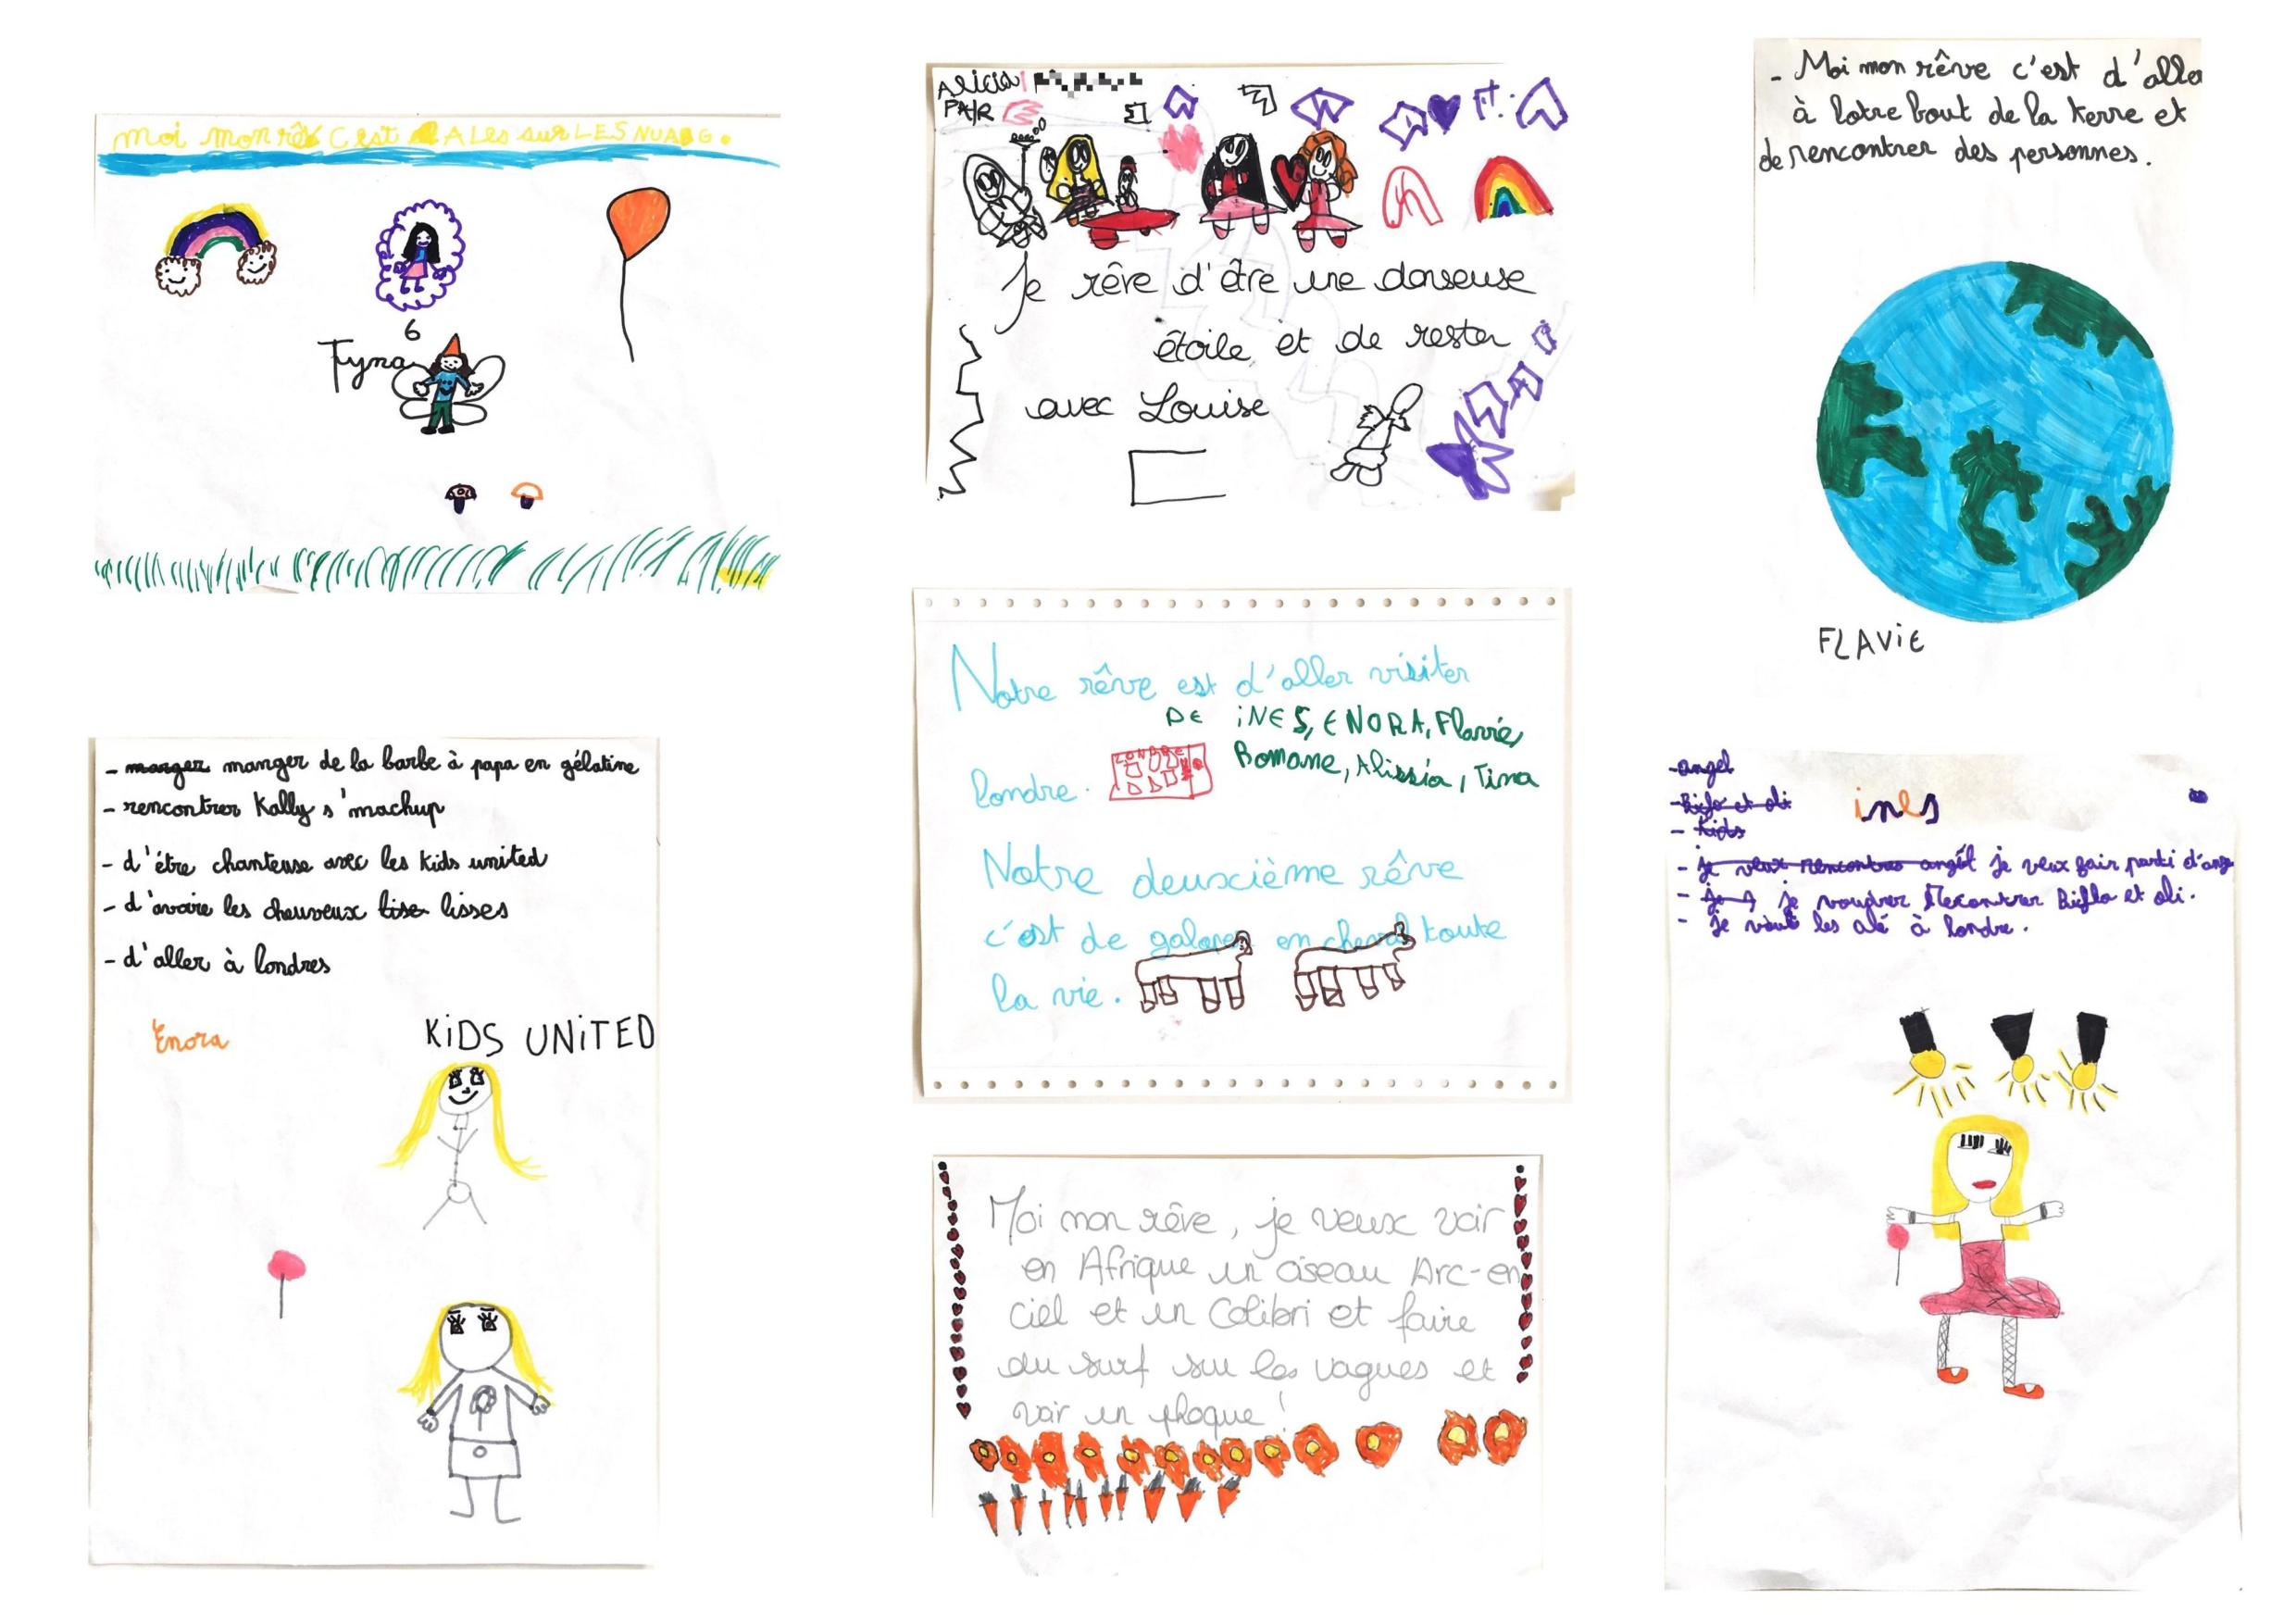 moi mon rêv C'est ALes sur LES NUAG.
6
Fyna
Alicia
PAR
Je rêve d'être une danseuse
étoile et de rester
avec Louise
- Moi mon rêve c'est d'aller
à lotre bout de la terre et
de rencontrer des personnes.
FLAViE
Notre rêve est d'aller visiter
DE iNES, ENORA, Flavie,
Romane, Alissia, Tina
londre.
LONDRE
Notre deuxcième rêve
c'est de galoper en cheval toute
la vie.
- manger manger de la barbe à papa en gélatine
- rencontrer Kally s'machup
- d'être chanteuse avec les Kids united
- d'avoire les cheuveux lise lisses
- d'aller à londres
Enora
KiDS UNiTED
Moi mon rêve, je veux voir
en Afrique un oiseau Arc-en
ciel et un Colibri et faire
du surf sur les vagues et
voir un phoque!
- angel
- Biflo et oli
- Kids
ines
- je veux rencontrer angèl je veux fair parti d'ang
- je voudrer Recontrer Biflo et oli.
- je veut les alé à londre.